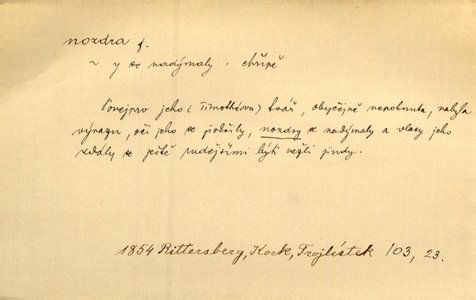 nozdra f.
~ y se nadýmaly. chřípě
Ponejprv jeho (Timotheova) tvář, obyčejně nepohnuta, nabyla
výrazu, oči jeho se jiskřily, nozdry se nadýmaly a vlasy jeho
zdály se ještě rudějšími býti nežli jindy.
1854 Rittersberg, Kock, Trojlístek 103, 23.